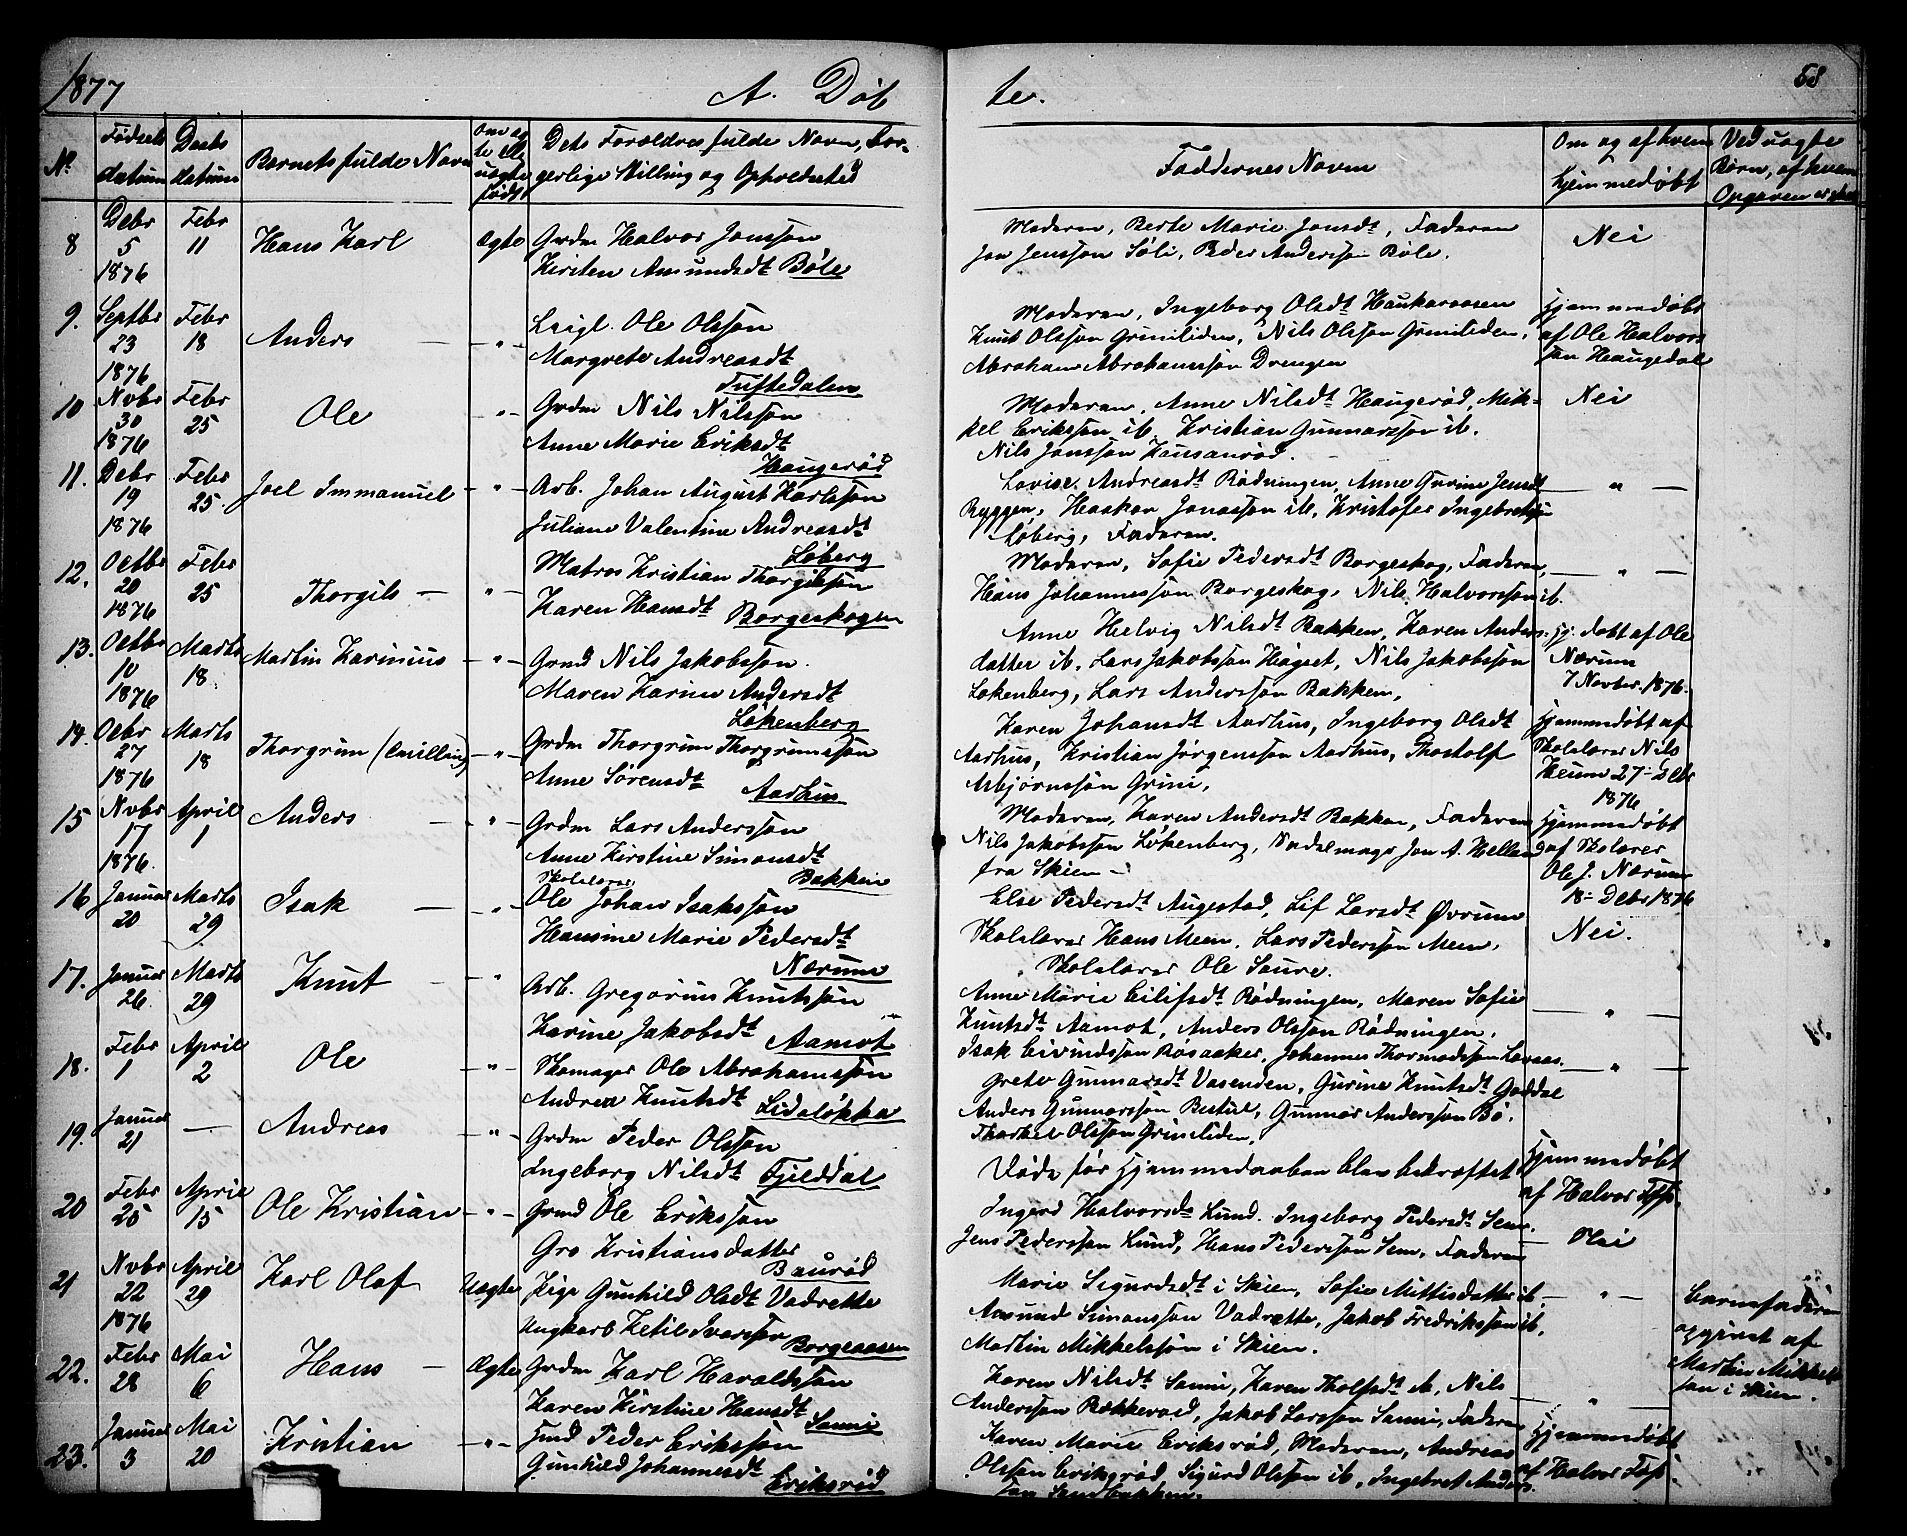 1877
A. Døb
te.
58
No. Fødsels datum Daabs datum Barnets fulde Navn Om ægte ell. uægte født Dets Forældres fulde Navn, borgerlige Stilling og Opholdssted
Faddernes Navn
Om og af hvem hjemmedøbt
Ved uægte Børn, af hvem Opgaven er
8 Debr 5 1876 Febr 11 Hans Karl Ægte Grdm Halvor Jonsson
Kirsten Amundsdt Böle
Moderen, Berte Marie Jonsdt, Faderen
Jon Jensson Söli, Peder Andersson Böle.
Nei
9. Septbr 23 1876 Febr 18 Anders — - " - Leigl. Ole Olsson
Margrete Andreasdt
Tuftedalen
Moderen, Ingeborg Olsdt Haukaraasen
Knut Olsson Grimliden, Nils Olsson Grimliden,
Abraham Abrahamsson Drengen
Hjemmedøbt
af Ole Halvors
son Haugedal
10 Novbr 30 1876 Febr 25 Ole - " - Grdm Nils Nilsson
Anne Marie Eriksdt
Haugerød
Moderen, Anne Nilsdt Haugerød, Mik-
kel Eriksson ib. Kristian Gunnarsson ib.
Nils Jonsson
Nei
11. Debr 19 1876 Febr 25. Joel Immanuel - " - Arb. Johan August Karlsson
Juliane Valentine Andreasdt
Løberg
Lovise Andreasdt Rødningen, Anne Gurine Jensdt
Ryggen, Haakon Jonasson ib, Kristofer Ingebretsson
Løberg, Faderen.
— " —
12. Octbr 20 1876 Febr 25 Thorgils — - " - Matros Kristian Thorgilsson
Karen Hansdt Borgeskogen
Moderen, Sofie Pedersdt Borgeskog, Faderen,
Hans Johannesson Borgeskog, Nils Halvorsson ib.
— " —
13. Octbr 10 1876 Marts 18 Martin Karinius - " - Grmd Nils Jakobsson.
Maren Karine Andersdt
Løkenberg
Anne Helvig Nilsdt Bakken, Karen Anders-
datter ib, Lars Jakobsson Høgset, Nils Jakobsson
Løkenberg, Lars Andersson Bakken,
Hj. døbt af Ole
Nærum
7 Novber. 1876.
14. Debr 27 1876 Marts 18 Thorgrim (tvilling) - " - Grdm Thorgrim Thorgrimsson
Anne Sørensdt
Aarhus
Karen Johansdt Aarhus, Ingeborg Olsdt
Aarhus, Kristian Jørgensson Aarhus, Thostolf
Asbjørnsson Grini,
Hjemmedøbt af
Skolelærer Nils
Heum 27- Debr
1876
15 Novbr 17 1876. April 1 Anders — - " - Grdm Lars Andersson
Anne Kirstine Simonsdt
Bakken
Moderen, Karen Andersdt Bakken, Faderen
Nils Jakobsson Løkenberg, Sadelmager Jon A. Helland
fra Skien —
Hjemmedøbt
af Skolelærer
Ole J. Nærum
18- Debr 1876
16 Januar 20 Marts 29 Isak — - " - Skolelærer
Ole Johan Isaksson
Hansine Marie Pedersdt
Nærum
Else Pedersdt Augestad, Lif Larsdt Øvrum
Skolelærer Hans Meen, Lars Pedersson Meen,
Skolelærer Ole Saure.
Nei.
17. Januar 26 Marts 29 Knut — " Arb. Gregorius Knutsson
Karine Jakobsdt Aamot
Anne Marie Eilifsdt Rødningen, Maren Sofie
Knutsdt Aamot, Anders Olsson Rødningen,
Isak Eivindsson Røsaaker, Johannes Thormodsson Løvaas.
— " —
18. Febr 1 April 2 Ole - " - Skomager Ole Abrahamsson
Andrea Knutsdt Lidaløkka
Grete Gunnarsdt Vasenden, Gurine Knutsdt Goddal
Anders Gunnarsson Bestul, Gunnar Andersson Bø.
Thorkel Olsson Grimliden,
— " —
19. Januar 21 — Andreas - " - Grdm Peder Olsson
Ingeborg Nilsdt Fjelddal
Døde før Hjemmedaaben blev bekræftet
Hjemmedøbt
af Halvor
20 Febr 25 April 15 Ole Kristian - " - Grmd Ole Eriksson
Gro Kristiansdatter
Baurød
Ingerd Halvorsdt Lund, Ingeborg Pedersdt Sem,
Jens Pedersson Lund, Hans Pedersson Sem, Faderen
Nei
21 Novbr 22 1876 April 29 Karl Olaf Uægte Pige Gunhild Olsdt Vadrette
Ungkarl Ketil Ivarsson
Borgeaasen
Marie Sigurdsdt i Skien, Sofie Mittisdatter ib,
Aasmund Simonsson Vadrette, Jakob Fredriksson ib,
Martin Mikkelsson i Skien.
— " —
Barnefaderen
opgivet af
Martin Mikkel
son i Skien.
22. Febr 28 Mai 6 Hans — Ægte Grdm Karl Haraldsson
Karen Kirstine Hansdt
Sanni
Karen Nilsdt Sanni, Karen Tholfsdt ib, Nils
Andersson Bekkevad, Jakob Larsson Sanni, Faderen
— " —
23. Januar 3 Mai 20 Kristian - " - Jmd Peder Eriksson
Gunhild Johannesdt
Eriksrød
Karen Marie Eriksrød, Moderen, Andreas
Olsson Eriksrød, Sigurd Olsson ib, Ingebret Anders
son Sandbakken.
Hjemmedøbt
af Halvor